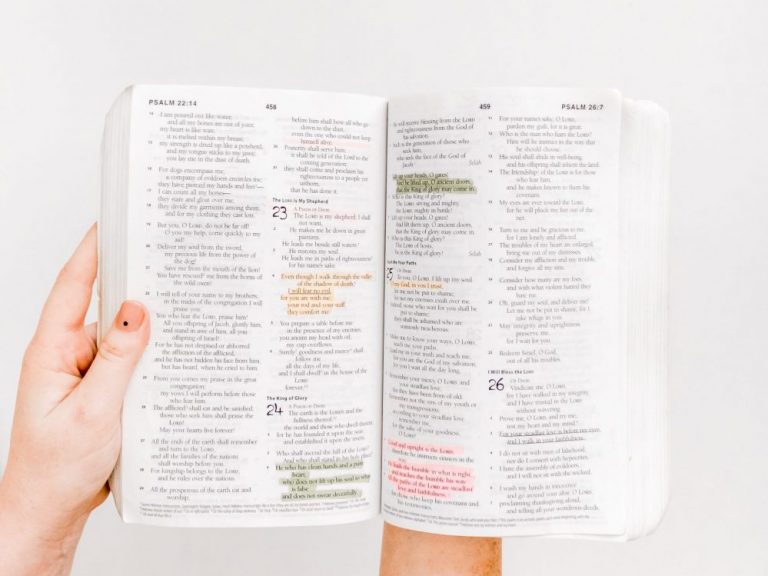 PSALM 22:14
458
14 I am poured out like water,
and all my bones are out of joint;
my heart is like wax;
it is melted within my breast;
15 my strength is dried up like a potsherd,
and my tongue sticks to my jaws;
you lay me in the dust of death.
16 For dogs encompass me;
a company of evildoers encircles me;
they have pierced my hands and feet
17 I can count all my bones—
they stare and gloat over me;
18 they divide my garments among them,
and for my clothing they cast lots.
19 But you, O LORD, do not be far off!
O you my help, come quickly to my
aid!
20 Deliver my soul from the sword,
my precious life from the power of
the dog!
21 Save me from the mouth of the lion!
You have rescued me from the horns of
the wild oxen!
22 I will tell of your name to my brothers;
in the midst of the congregation I will
praise you:
You who fear the LORD, praise him!
All you offspring of Jacob, glorify him,
and stand in awe of him, all you
offspring of Israel!
For he has not despised or abhorred
the affliction of the afflicted,
and he has not hidden his face from him,
but has heard, when he cried to him.
25 From you comes my praise in the great
congregation;
my vows I will perform before those
who fear him.
26 The afflicted shall eat and be satisfied;
those who seek him shall praise the
LORD!
May your hearts live forever!
27 All the ends of the earth shall remember
and turn to the LORD,
and all the families of the nations
shall worship before you.
28 For kingship belongs to the LORD,
and he rules over the nations.
29 All the prosperous of the earth eat and
worship;
before him shall bow all who go
down to the dust,
even the one who could not keep
himself alive.
30 Posterity shall serve him;
it shall be told of the Lord to the
coming generation;
31 they shall come and proclaim his
righteousness to a people yet
unborn,
that he has done it.
The LORD Is My Shepherd
23 A Psalm of David.
The LORD is my shepherd; I shall
not want.
2 He makes me lie down in green
pastures.
He leads me beside still waters.
3 He restores my soul.
He leads me in paths of righteousness
for his name's sake.
4 Even though I walk through the valley
of the shadow of death,
I will fear no evil,
for you are with me;
your rod and your staff,
they comfort me.
5 You prepare a table before me
in the presence of my enemies;
you anoint my head with oil;
my cup overflows.
6 Surely goodness and mercy shall
follow me
all the days of my life,
and I shall dwell in the house of the
LORD
forever.
The King of Glory
24 A Psalm of David.
The earth is the LORD's and the
fullness thereof,
the world and those who dwell therein,
2 for he has founded it upon the seas
and established it upon the rivers.
3 Who shall ascend the hill of the LORD?
And who shall stand in his holy place?
4 He who has clean hands and a pure
heart,
who does not lift up his soul to what
is false
and does not swear deceitfully.
459
PSALM 26:7
He will receive blessing from the LORD
and righteousness from the God of
his salvation.
Such is the generation of those who
seek him,
who seek the face of the God of
Jacob. Selah
Lift up your heads, O gates!
And be lifted up, O ancient doors,
that the King of glory may come in.
Who is this King of glory?
The LORD, strong and mighty,
the LORD, mighty in battle!
Lift up your heads, O gates!
And lift them up, O ancient doors,
that the King of glory may come in.
Who is this King of glory?
The LORD of hosts,
he is the King of glory! Selah
Teach Me Your Paths
25 Of David.
To you, O LORD, I lift up my soul.
O my God, in you I trust;
let me not be put to shame;
let not my enemies exult over me.
Indeed, none who wait for you shall be
put to shame;
they shall be ashamed who are
wantonly treacherous.
Make me to know your ways, O LORD;
teach me your paths.
Lead me in your truth and teach me,
for you are the God of my salvation;
for you I wait all the day long.
Remember your mercy, O LORD, and
your steadfast love,
for they have been from of old.
Remember not the sins of my youth or
my transgressions;
according to your steadfast love
remember me,
for the sake of your goodness,
O LORD!
Good and upright is the LORD;
therefore he instructs sinners in the
way.
He leads the humble in what is right,
and teaches the humble his way.
All the paths of the LORD are steadfast
love and faithfulness,
for those who keep his covenant and
his testimonies.
11 For your name's sake, O LORD,
pardon my guilt, for it is great.
12 Who is the man who fears the LORD?
Him will he instruct in the way that
he should choose.
13 His soul shall abide in well-being,
and his offspring shall inherit the land.
14 The friendship of the LORD is for those
who fear him,
and he makes known to them his
covenant.
15 My eyes are ever toward the LORD,
for he will pluck my feet out of the
net.
16 Turn to me and be gracious to me,
for I am lonely and afflicted.
17 The troubles of my heart are enlarged;
bring me out of my distresses.
18 Consider my affliction and my trouble,
and forgive all my sins.
19 Consider how many are my foes,
and with what violent hatred they
hate me.
20 Oh, guard my soul, and deliver me!
Let me not be put to shame, for I
take refuge in you.
21 May integrity and uprightness
preserve me,
for I wait for you.
22 Redeem Israel, O God,
out of all his troubles.
I Will Bless the LORD
26 Of David.
Vindicate me, O LORD,
for I have walked in my integrity,
and I have trusted in the LORD
without wavering.
2 Prove me, O LORD, and try me;
test my heart and my mind.
3 For your steadfast love is before my eyes,
and I walk in your faithfulness.
4 I do not sit with men of falsehood,
nor do I consort with hypocrites.
5 I hate the assembly of evildoers,
and I will not sit with the wicked.
6 I wash my hands in innocence
and go around your altar, O LORD,
7 proclaiming thanksgiving aloud,
and telling all your wondrous deeds.